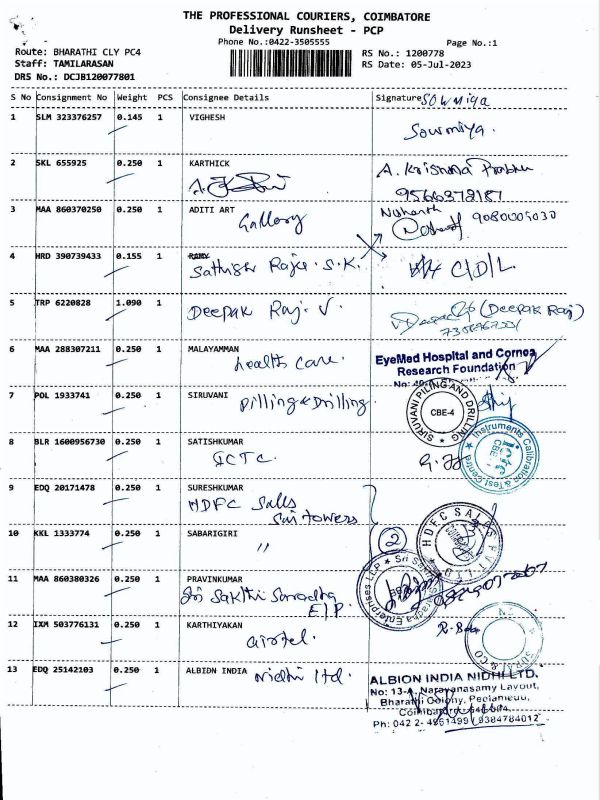 THE PROFESSIONAL COURIERS, COIMBATORE
Delivery Runsheet - PCP
Phone No.:0422-3505555
Page No.:1
Route: BHARATHI CLY PC4
RS No.: 1200778
Staff: TAMILARASAN
RS Date: 05-Jul-2023
DRS No.: DCJB120077801
S No Consignment No Weight PCS Consignee Details Signature Sowmiya
1 SLM 323376257 0.145 1 VIGHESH
Sowmiya.
2 SKL 655925 0.250 1 KARTHICK A. Krishna Prabhu
9566378187
3 MAA 860370250 0.250 1 ADITI ART
Gallery
Nishanth 9080009030
4 HRD 390739433 0.155 1
Sathish Raja. S.K. C/D/L.
5 TRP 6220828 1.090 1 Deepak Raj. V. (Deepak Raj)
6 MAA 288307211 0.250 1 MALAYAMMAN
health care.
EyeMed Hospital and Cornea
Research Foundation
7 POL 1933741 0.250 1 SIRUVANI
Pilling & Drilling
SIRUVANI PILING AND DRILLING
CBE-4
8 BLR 1600956730 0.250 1 SATISHKUMAR
ICTC.
Instruments Calibration & Test Centre
9 EDQ 20171478 0.250 1 SURESHKUMAR
HDFC Salls
Sai towers
HDFC SALES PVT LTD
10 KKL 1333774 0.250 1 SABARIGIRI
"
2
11 MAA 860380326 0.250 1 PRAVINKUMAR
Sri Sakthi Saradha
E/P.
Enterprises LLP
12 IXM 503776131 0.250 1 KARTHIYAKAN
airtel.
13 EDQ 25142103 0.250 1 ALBION INDIA Nidhi ltd.
ALBION INDIA NIDHI LTD.
No: 13-A, Narayanasamy Layout,
Bharathi Colony, Peelamedu,
Ph: 042 2- 4951499 / 9384784012